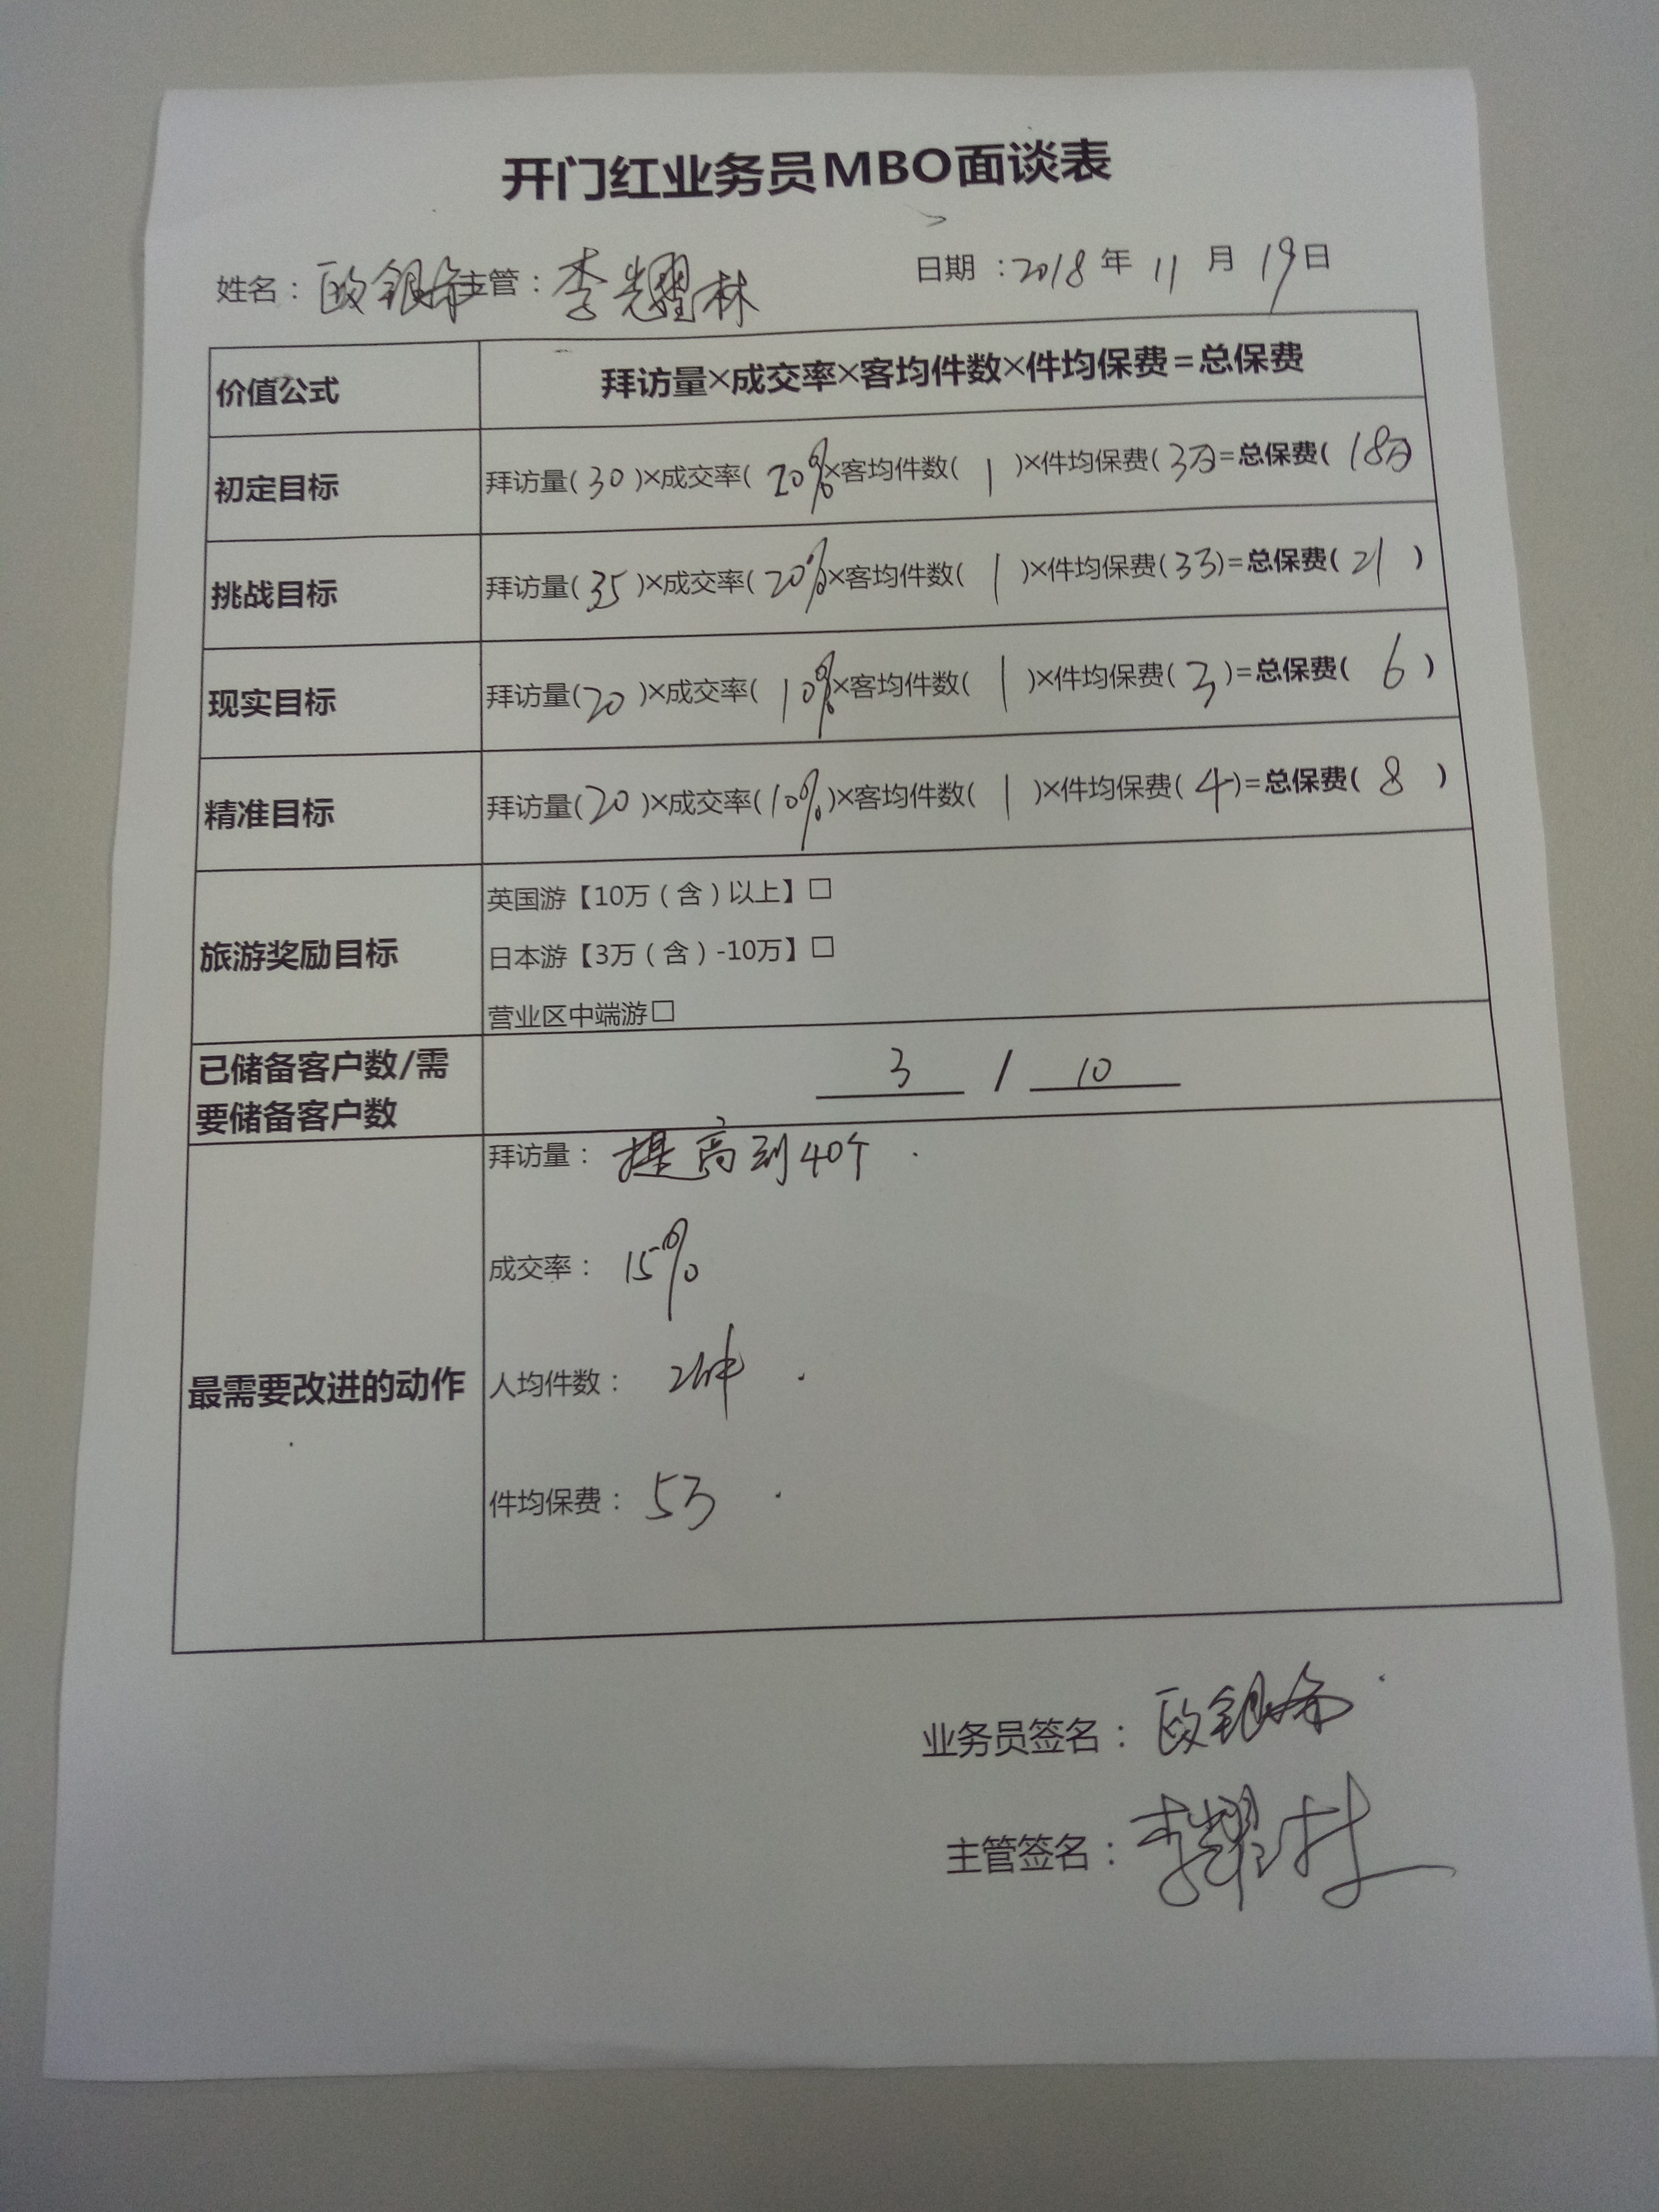 开门红业务员MBO面谈表
姓名： 欧银 主管： 李耀林 日期 ：2018 年 11 月 19日
价值公式 拜访量×成交率×客均件数×件均保费=总保费
初定目标 拜访量( 30 )×成交率( 20%×客均件数( 1 )×件均保费( 3万=总保费( 18万
挑战目标 拜访量( 35 )×成交率( 20%×客均件数( 1 )×件均保费( 3万)=总保费( 21 )
现实目标 拜访量(20 )×成交率( 10%×客均件数( 1 )×件均保费( 3 )=总保费( 6 )
精准目标 拜访量(20 )×成交率(10%)×客均件数( 1 )×件均保费( 4 )=总保费( 8 )
旅游奖励目标
英国游【10万（含）以上】□
日本游【3万（含）-10万】□
营业区中端游□
已储备客户数/需
要储备客户数
3 / 10
最需要改进的动作
拜访量： 提高到40个
成交率： 15%
人均件数： 2件
件均保费： 5万
业务员签名： 欧银
主管签名： 李耀林